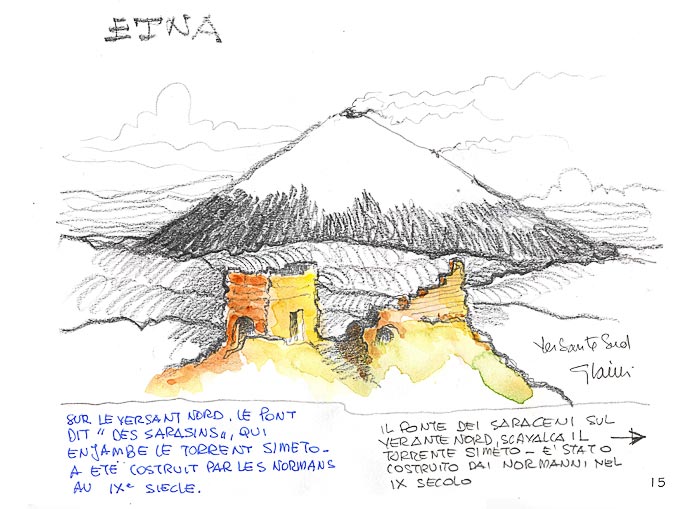 ETNA
Versante Sud
SUR LE VERSANT NORD. LE PONT
DIT " DES SARASINS„, QUI
ENJAMBE LE TORRENT SIMETO-
A ETÉ COSTRUIT PAR LES NORMANS
AU IXe SIECLE.
IL PONTE DEI SARACENI SUL
VERANTE NORD, SCAVALCA IL
TORRENTE SIMETO - E' STATO
COSTRUITO DAI NORMANNI NEL
IX SECOLO
15